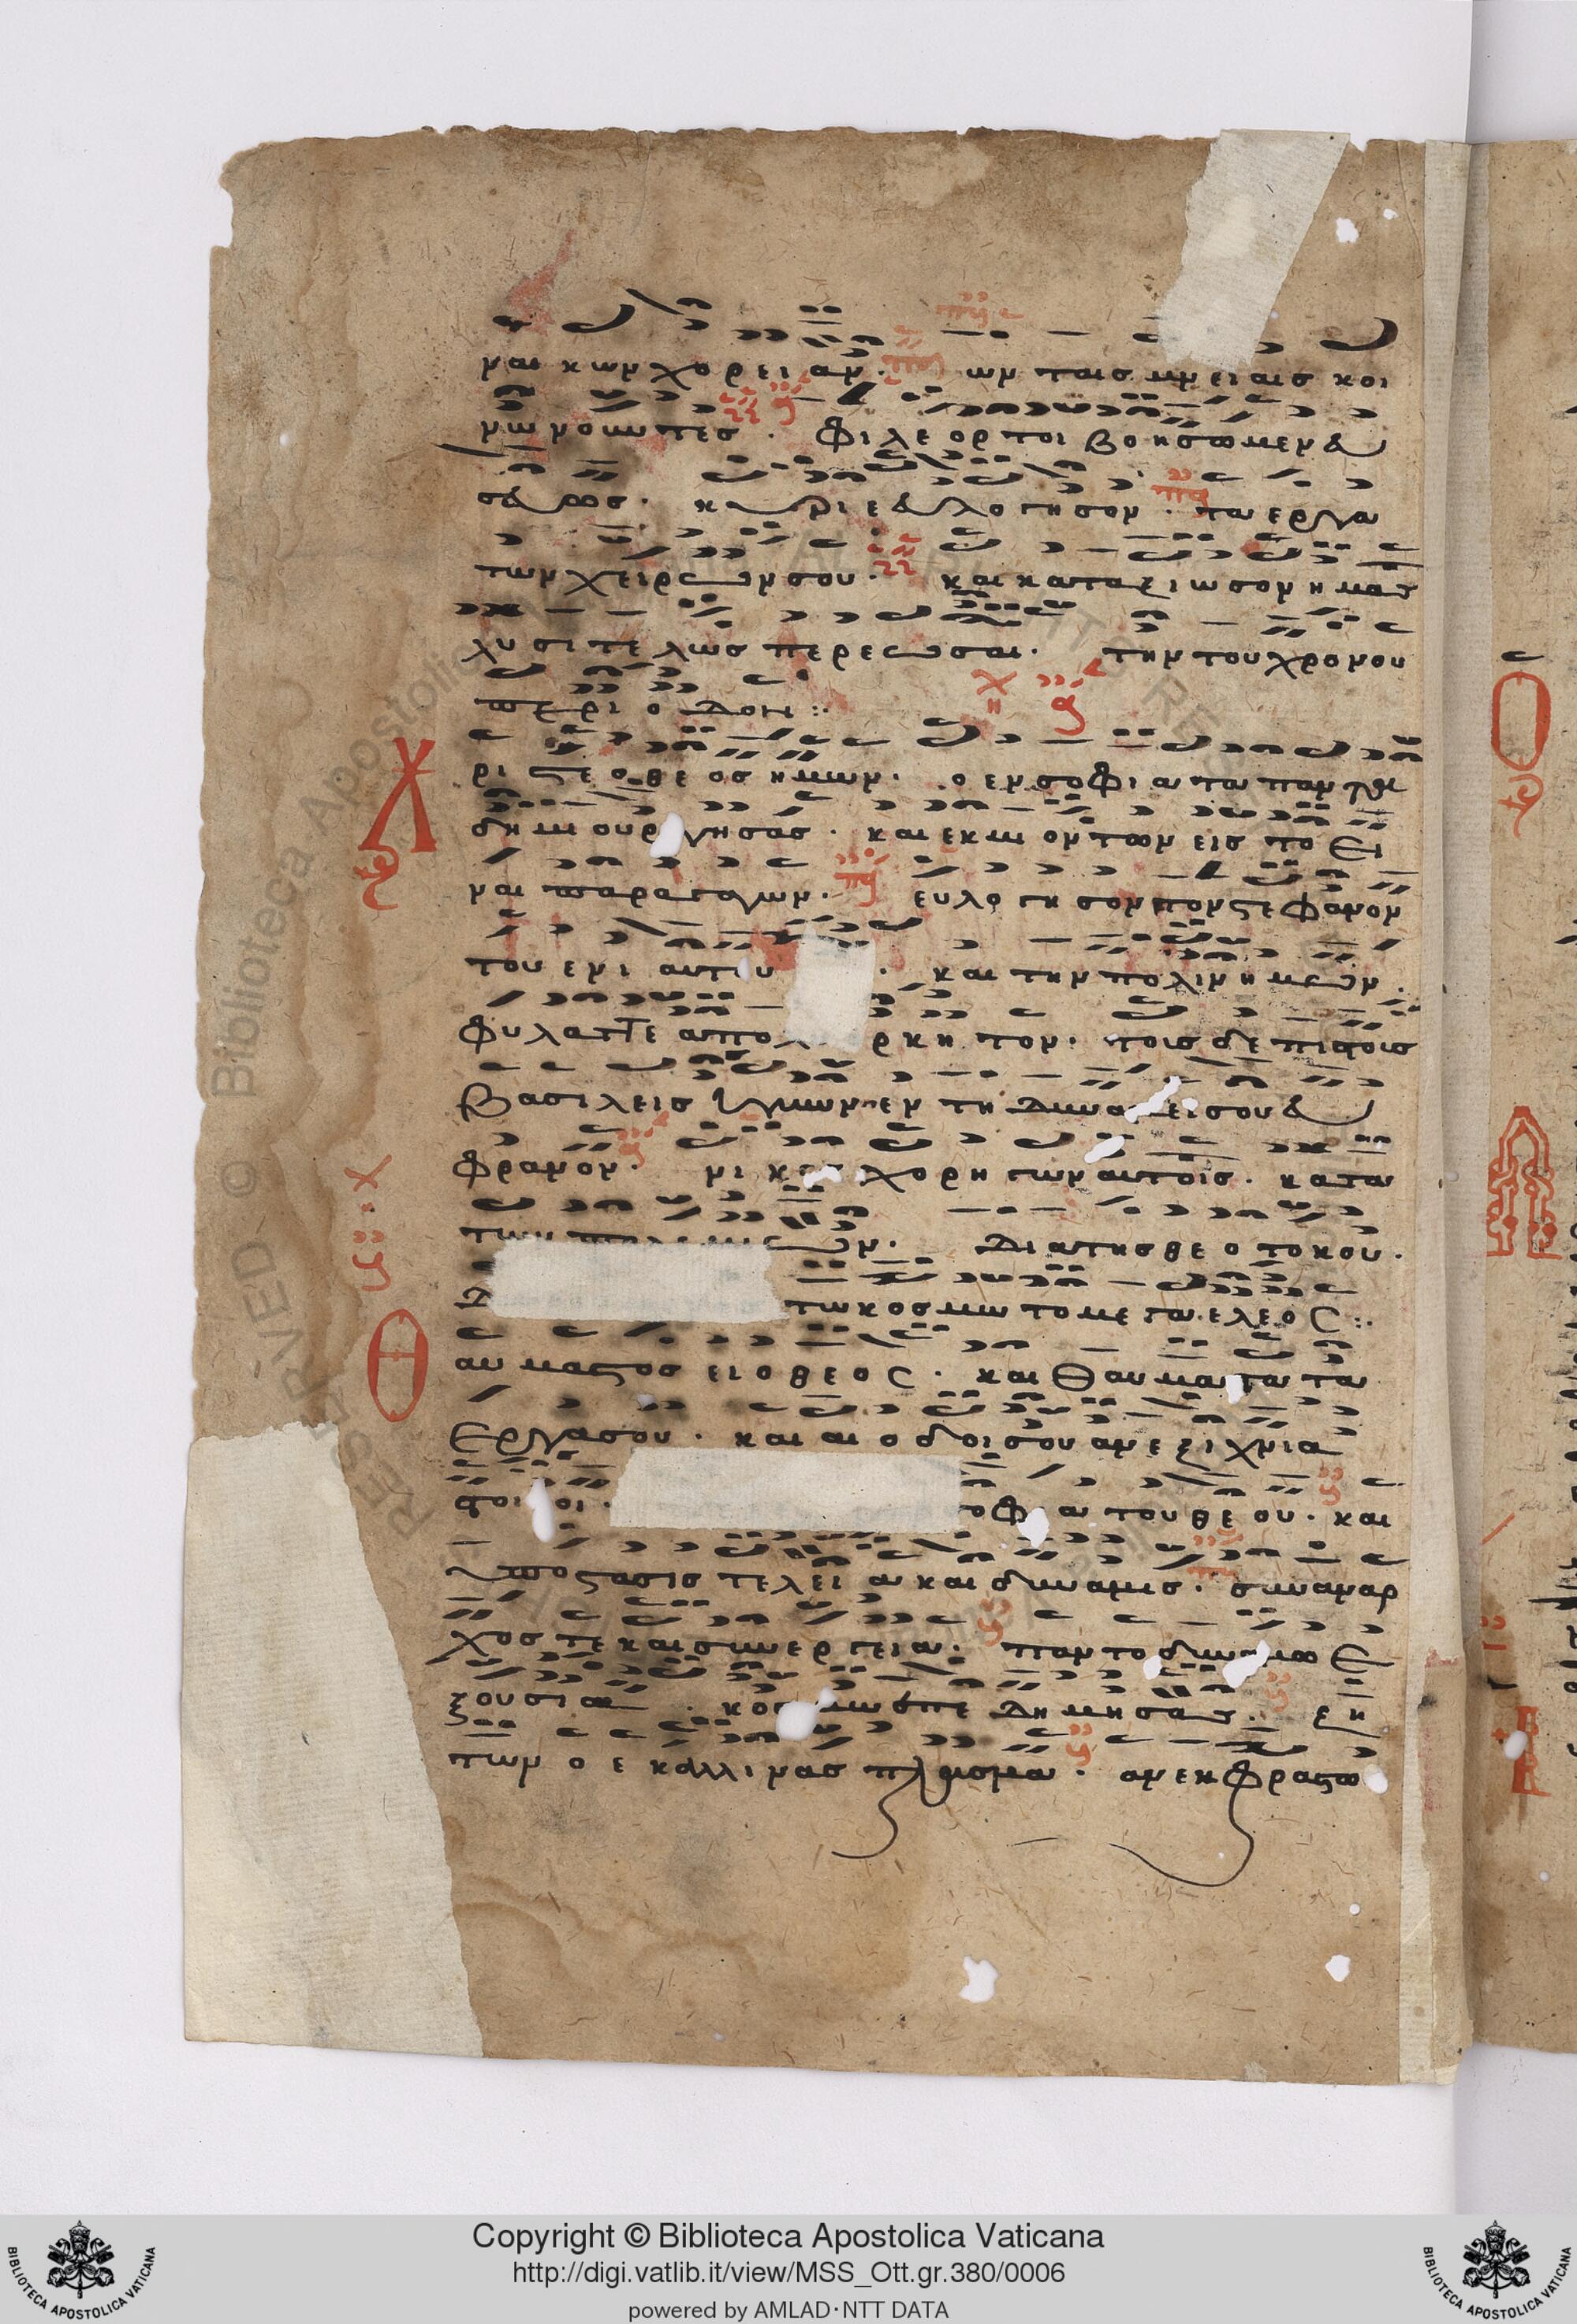 ναι κων χορειαν · ων ταισ μνειαισ κοι
νωνουντεσ · φιλεορτοι βοησωμεν ευ
σευωσ · κυριε ευλογησον · τα εργα
των χειρων σου · και καταξιωσον ημασ
λυσιτελωσ περεωσαι · την του χρονου
περιοδον :·
Χ ρι στε ο θεοσ ημων · ο εν σοφια τα παντα
δημιουργησασ · και εκ μη οντων εισ το ει
ναι παραγαγων · ευλογησον τον στεφανον
του ενιαυτου · και την πολιν ημων ·
φυλαττε απο ορκητον · τοισ δε πιστοισ
βασιλεισ ημων εν τη δυναμει σου ευ
φρανον · νικασ χορηγων αυτοισ · κατα
των ων · Δια τησ θεοτοκου ·
Δ τω κοσμω το μεγα ελεοσ :·
Θ αυμαστοσ ει ο θεοσ · και θαυμαστα τα
εργα σου · και αι οδοι σου ανεξιχνια
στοι · οφια του θεου · και
υποστασισ τελεια και δυναμισ · συναναρ
χοσ τε και συνεργεια · παντοδυναμω ε
ξουσια · κοσμω επεδημησασ · ζη
των ο εκαλλινασ πλασμα · ανεκφραστω
RESERVED © Biblioteca Apostolica
Copyright © Biblioteca Apostolica Vaticana
http://digi.vatlib.it/view/MSS_Ott.gr.380/0006
powered by AMLAD·NTT DATA
BIBLIOTECA APOSTOLICA VATICANA
BIBLIOTECA APOSTOLICA VATICANA